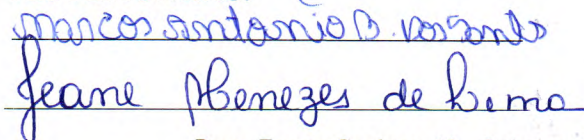 Marcos Antonio B. dos Santos
Jeane Menezes de Lima